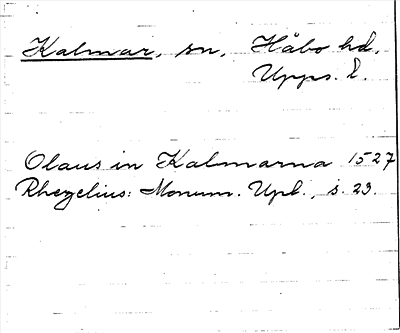 Kalmar, sn, Håbo hd.
Upps. l.
Olaus in Kalmarna 1527
Rhezelius: Monum. Upl., s. 23.